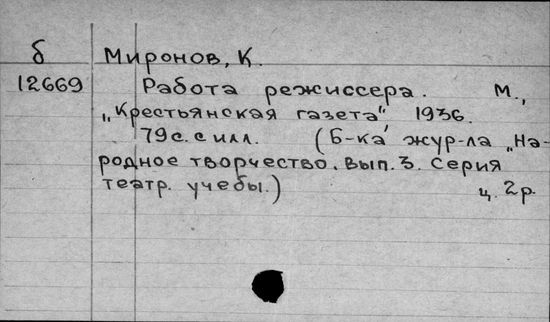 б Миронов, К.
12669 Работа режиссера. М.,
„Крестьянская газета" 1936.
79 с. с илл. (Б-ка жур-ла „На-
родное творчество. Вып. 3. Серия
театр. учебы.) ц. 2 р.